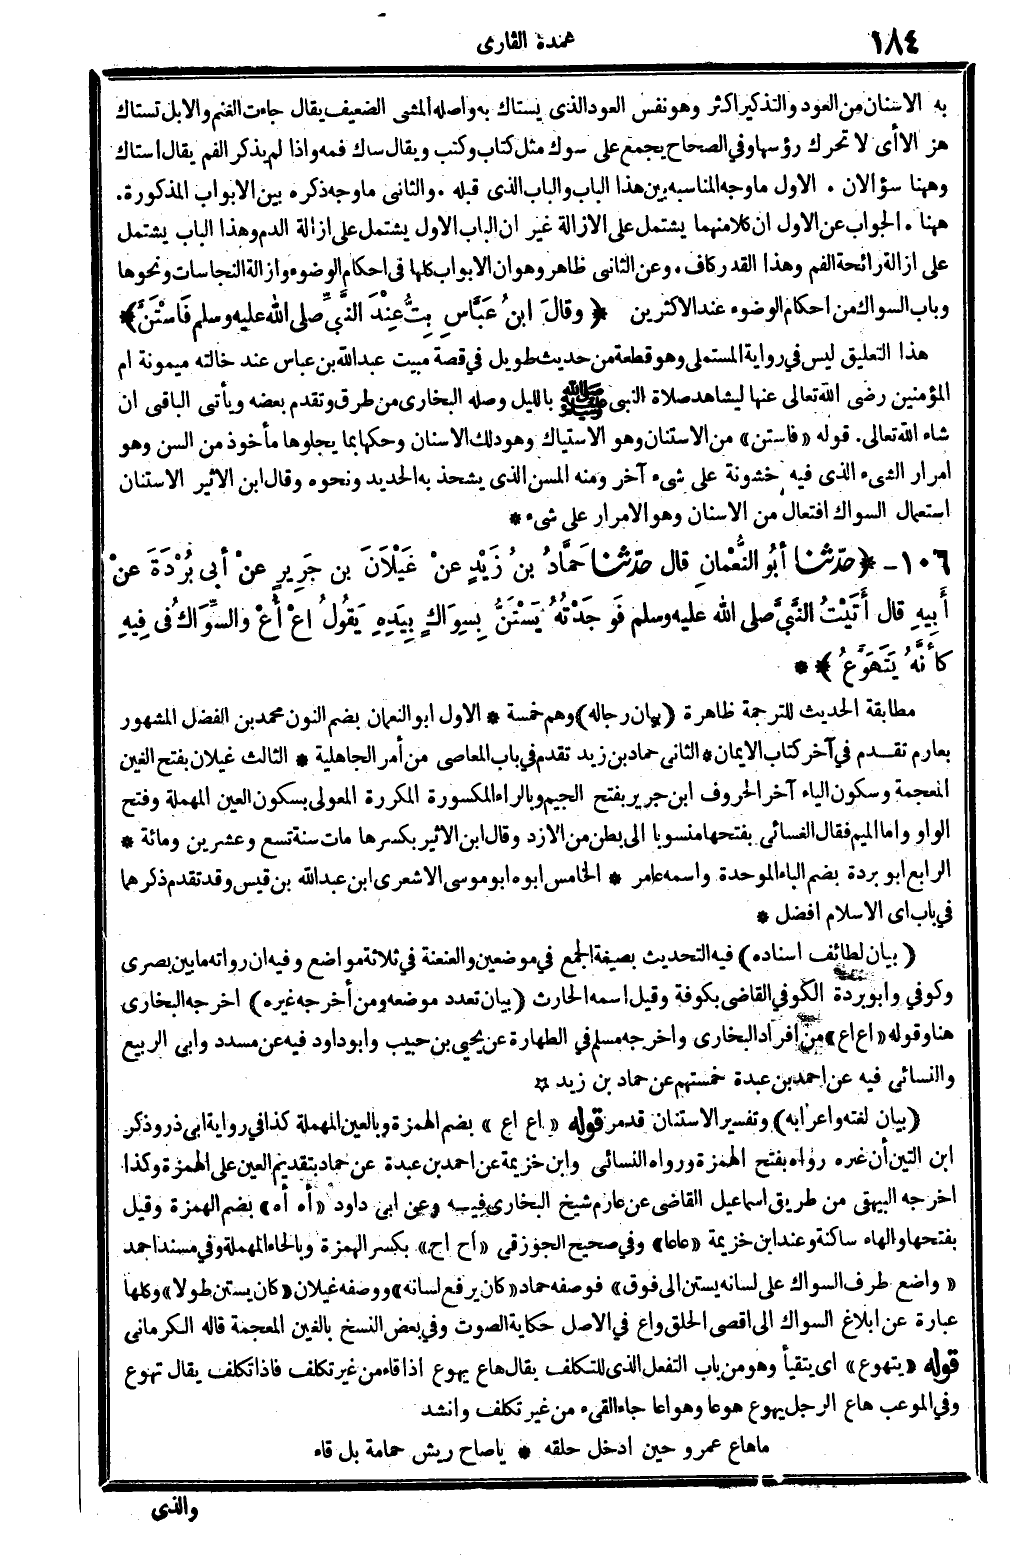 ١٨٤
عمدة القارى
به الاسنان من العود والتذكير اكثر وهو نفس العود الذى يستاك به واصله المشى الضعيف يقال جاءت الغنم والابل تستاك
هزالا أى لا تحرك رؤسها وفي الصحاح يجمع على سوك مثل كتاب وكتب ويقال ساك فمه واذا لم يذكر الفم يقال استاك
وههنا سؤالان . الاول ما وجه المناسبة بين هذا الباب والباب الذى قبله . والثانى ما وجه ذكره بين الابواب المذكورة.
ههنا . الجواب عن الاول ان كلا منهما يشتمل على الازالة غير ان الباب الاول يشتمل على ازالة الدم وهذا الباب يشتمل
على ازالة رائحة الفم وهذا القدر كاف . وعن الثانى ظاهر وهو ان الابواب كلها فى احكام الوضوء وازالة النجاسات ونحوها
وباب السواك من احكام الوضوء عند الاكثرين ﴿ وقالَ ابنُ عَبَّاسٍ بِتُّ عِنْدَ النَّبِيِّ صلى الله عليه وسلم فَاسْتَنَّ ﴾
هذا التعليق ليس في رواية المستملى وهو قطعة من حديث طويل في قصة مبيت عبد الله بن عباس عند خالته ميمونة ام
المؤمنين رضى الله تعالى عنها ليشاهد صلاة النبى ﷺ بالليل وصله البخارى من طرق وتقدم بعضه ويأتى الباقى ان
شاء الله تعالى. قوله «فاستن» من الاستنان وهو الاستياك وهو دلك الاسنان وحكها بما يجلوها مأخوذ من السن وهو
امرار الشىء الذى فيه خشونة على شىء آخر ومنه المسن الذى يشحذ به الحديد ونحوه وقال ابن الاثير الاستنان
استعمال السواك افتعال من الاسنان وهو الامرار على شىء *
١٠٦ - ﴿ حدّثنا أبُو النُّعْمانِ قال حدّثنا حَمَّادُ بنُ زَيْدٍ عنْ غَيْلَانَ بن جَرِيرٍ عنْ أبى بُرْدَةَ عنْ
أَبِيهِ قال أَتَيْتُ النَّبِيَّ صلى الله عليه وسلم فَوَجَدْتُهُ يَسْتَنُّ بِسِوَاكٍ بِيَدِهِ يَقُولُ اعْ أُعْ والسِّوَاكُ فى فِيهِ
كأنَّهُ يَتَهَوَّعُ ﴾ *
مطابقة الحديث للترجمة ظاهرة (بيان رجاله) وهم خمسة * الاول ابو النعمان بضم النون محمد بن الفضل المشهور
بعارم تقدم في آخر كتاب الايمان * الثانى حماد بن زيد تقدم في باب المعاصى من أمر الجاهلية * الثالث غيلان بفتح الغين
المعجمة وسكون الياء آخر الحروف ابن جرير بفتح الجيم وبالراء المكسورة المكررة المعولى بسكون العين المهملة وفتح
الواو واما الميم فقال الغسانى بفتحها منسوبا الى بطن من الازد وقال ابن الاثير بكسرها مات سنة تسع وعشرين ومائة *
الرابع ابو بردة بضم الباء الموحدة واسمه عامر * الخامس ابوه ابو موسى الاشعرى ابن عبد الله بن قيس وقد تقدم ذكرهما
في باب اى الاسلام افضل *
( بيان لطائف اسناده ) فيه التحديث بصيغة الجمع في موضعين والعنعنة في ثلاثة مواضع وفيه ان رواته ما بين بصرى
وكوفي وابو بردة الكوفي القاضى بكوفة وقيل اسمه الحارث ( بيان تعدد موضعه ومن أخرجه غيره ) اخرجه البخارى
هنا وقوله «اع اع» من افراد البخارى واخرجه مسلم في الطهارة عن يحيى بن حبيب وابو داود فيه عن مسدد وابى الربيع
والنسائى فيه عن احمد بن عبدة خمستهم عن حماد بن زيد ☆
(بيان لغته واعرابه) وتفسير الاستنان قد مر قوله « اع اع » بضم الهمزة وبالعين المهملة كذا في رواية ابى ذر وذكر
ابن التين أن غيره رواه بفتح الهمزة ورواه النسائى وابن خزيمة عن احمد بن عبدة عن حماد بتقديم العين على الهمزة وكذا
اخرجه البيهقى من طريق اسماعيل القاضى عن عارم شيخ البخارى فيه وعن ابى داود «أه أه» بضم الهمزة وقيل
بفتحها والهاء ساكنة وعند ابن خزيمة «عاعا» وفي صحيح الجوزقى «اح اح» بكسر الهمزة وبالحاء المهملة وفي مسند احمد
« واضع طرف السواك على لسانه يستن الى فوق» فوصفه حماد «كان يرفع لسانه» ووصفه غيلان «كان يستن طولا» وكلها
عبارة عن ابلاغ السواك الى اقصى الحلق واع في الاصل حكاية الصوت وفي بعض النسخ بالغين المعجمة قاله الكرمانى
قوله «يتهوع» اى يتقيأ وهو من باب التفعل الذى للتكلف يقال هاع يهوع اذا قاء من غير تكلف فاذا تكلف يقال تهوع
وفي الموعب هاع الرجل يهوع هوعا وهواعا جاءه القىء من غير تكلف وانشد
ماهاع عمرو حين ادخل حلقه * ياصاح ريش حمامة بل قاء
والذى